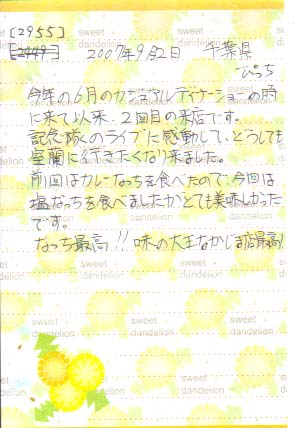 [2955]
[2449]
2007年9月2日 千葉県
ぴっち
今年の6月のカジュアルディナーショーの時
に来て以来、2回目の来店です。
記念隊のライブに感動して、どうしても
室蘭に行きたくなり来ました。
前回はカレーなっちを食べたので、今回は
塩なっちを食べましたがとても美味しかった
です。
なっち最高!! 味の大王なかじま店最高!
sweet dandelion